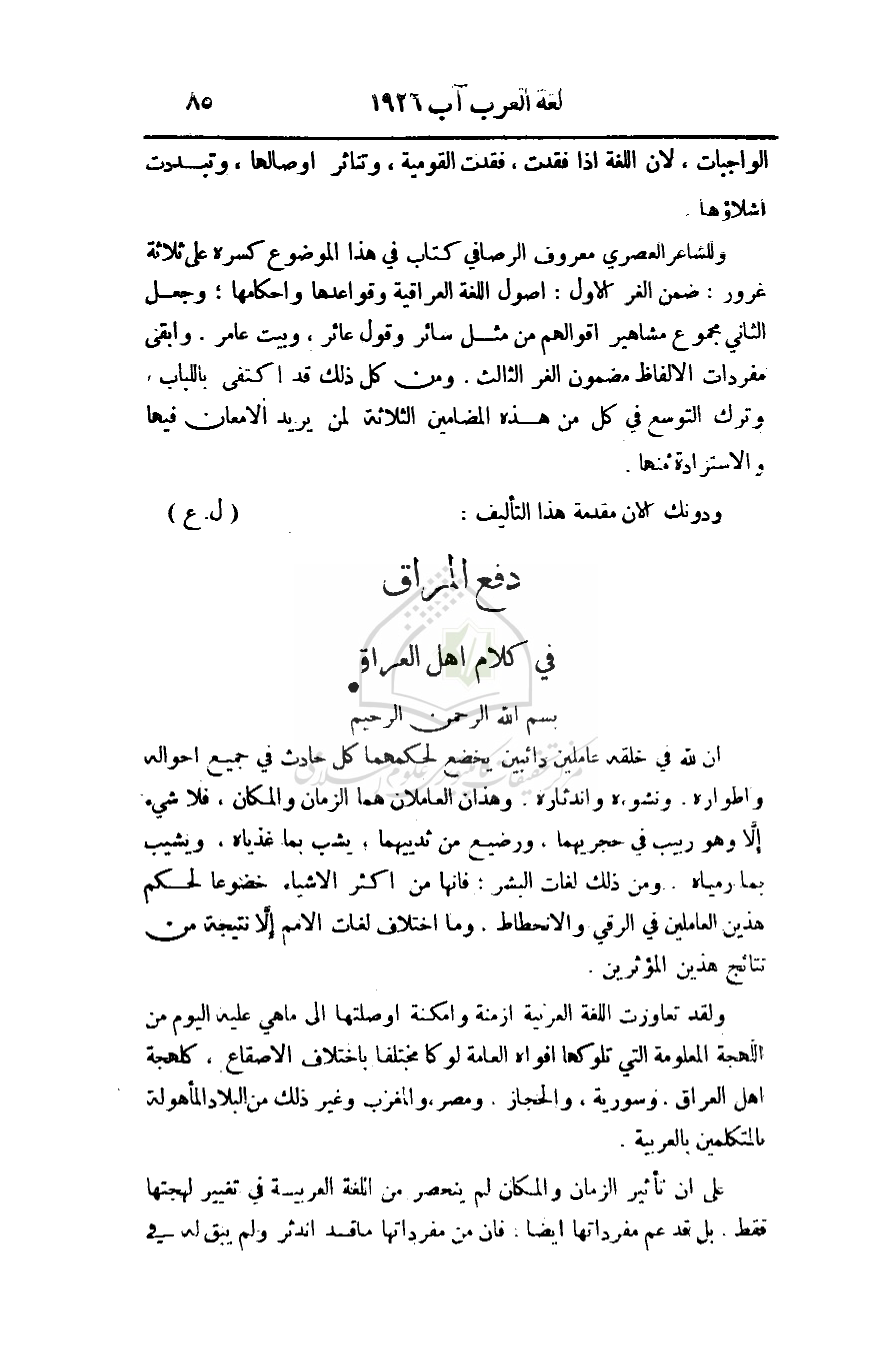 لغة العرب آب ١٩٢٦ ٨٥
الواجبات ، لان اللغة اذا فقدت ، فقدت القومية ، وتناثر اوصالها ، وتبددت
اشلاؤها .
وللشاعر العصري معروف الرصافي كتاب في هذا الموضوع كسره على ثلاثة
غرور : ضمن الغر الاول : اصول اللغة العراقية وقواعدها واحكامها ؛ وجعل
الثاني مجموع مشاهير اقوالهم من مثل سائر وقول عائر ، وبيت عامر . وابقى
مفردات الالفاظ مضمون الغر الثالث . ومن كل ذلك قد اكتفى باللباب ،
وترك التوسع في كل من هذه المضامين الثلاثة لمن يريد الامعان فيها
والاستزادة منها .
ودونك الان مقدمة هذا التأليف : ( ل.ع )
دفع المراق
في كلام اهل العراق
بسم الله الرحمن الرحيم
ان لله في خلقه عاملين دائبين يخضع لحكمهما كل حادث في جميع احواله
واطواره . ونشوءه واندثاره . وهذان العاملان هما الزمان والمكان ، فلا شيء
إلّا وهو ربيب في حجريهما . ورضيع من ثدييهما ؛ يشب بما غذياه . ويشيب
بما رمياه . ومن ذلك لغات البشر ؛ فانها من اكثر الاشياء خضوعا لحكم
هذين العاملين في الرقي والانحطاط . وما اختلاف لغات الامم إلّا نتيجة من
نتائج هذين المؤثرين .
ولقد تعاورت اللغة العربية ازمنة وامكنة اوصلتها الى ماهي عليه اليوم من
اللهجة المعلومة التي تلوكها افواه العامة لوكا مختلفا باختلاف الاصقاع ، كلهجة
اهل العراق . وسورية ، والحجاز . ومصر ، والمغرب وغير ذلك من البلاد المأهولة
بالمتكلمين بالعربية .
على ان تأثير الزمان والمكان لم ينحصر من اللغة العربية في تغيير لهجتها
فقط . بل قد عم مفرداتها ايضا : فان من مفرداتها ماقد اندثر ولم يبق له في